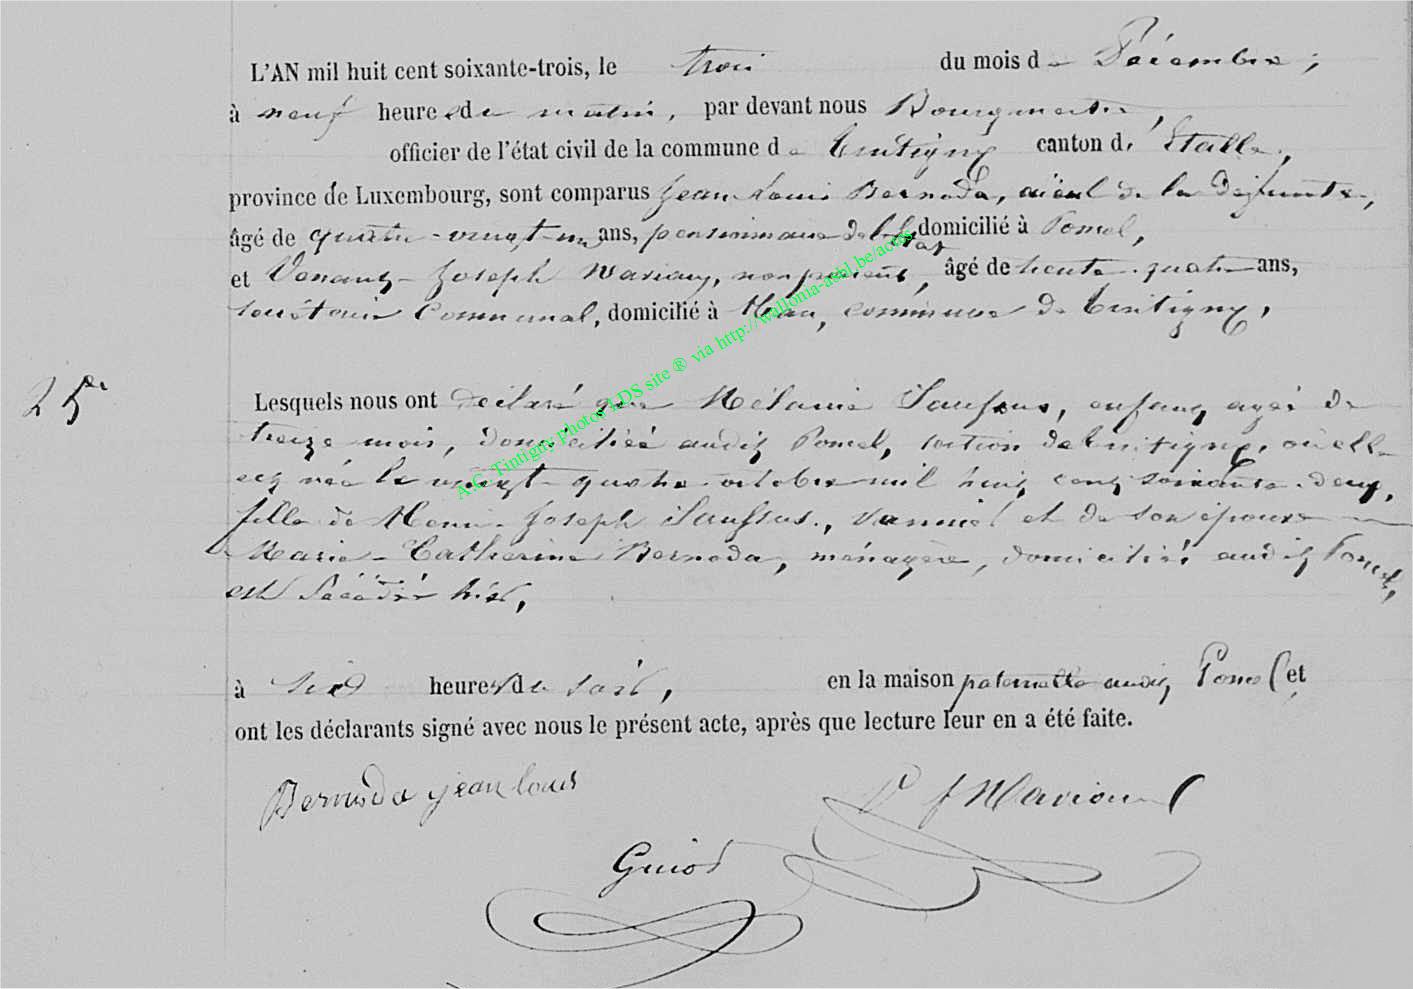 L'AN mil huit cent soixante-trois, le trois du mois de Décembre,
à neuf heures du matin, par devant nous Bourgmestre,
officier de l'état civil de la commune de Tintigny canton d' Etalle,
province de Luxembourg, sont comparus Jean Louis Bernoda, aïeul de la défunte,
âgé de quatre-vingt-un ans, pensionnaire de l'Etat domicilié à Poncel,
et Venant-Joseph Mariany, non parent, âgé de trente-quatre ans,
secrétaire Communal, domicilié à commune de Tintigny,
25e
Lesquels nous ont déclaré que Mélanie Saussus, enfant, agée de
treize mois, domiciliée audit Poncel, section de Tintigny, où elle
est née le vingt-quatre octobre mil huit cent soixante-deux,
fille de Henri-Joseph Saussus, et de son épouse
Marie-Catherine Bernoda, ménagère, domiciliés audit Poncel,
est décédée hier,
à six heures du soir, en la maison paternelle audit Poncel et
ont les déclarants signé avec nous le présent acte, après que lecture leur en a été faite.
Bernoda jean louis
Guiot
A.C. Tintigny photos LDS site ® via http://wallonia-asbl.be/actes